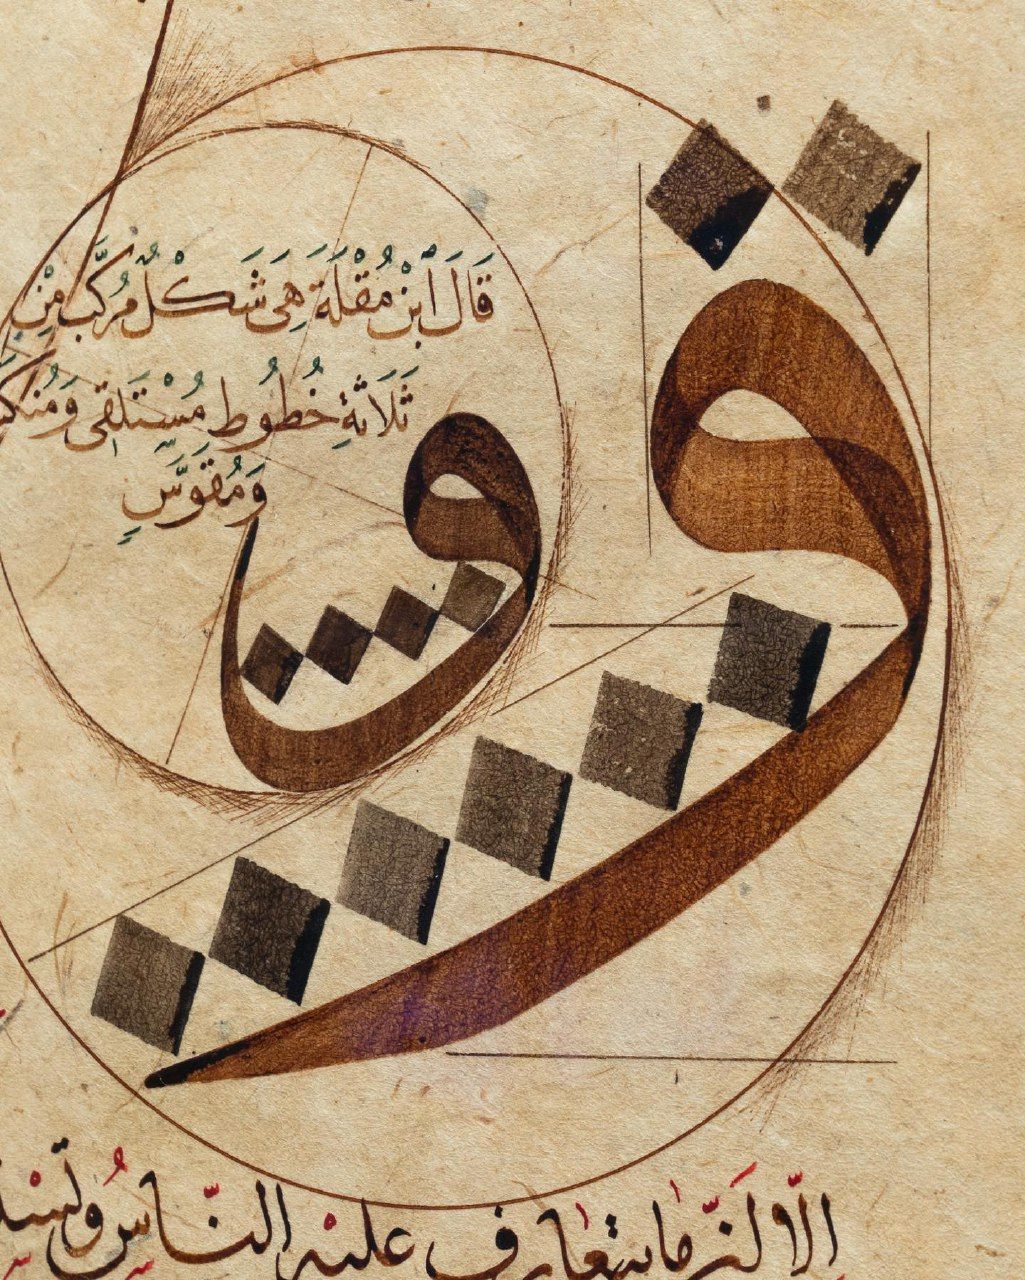 قَالَ ٱبْنُ مُقْلَةَ هِيَ شَكْلٌ مُرَكَّبٌ مِنْ
ثَلَاثَةِ خُطُوطٍ مُسْتَلْقِي وَمُنْكَبّ
وَمُقَوَّسٍ
و
ق
إلّا لزّ ما يتعارف عليْه النّاسُ و